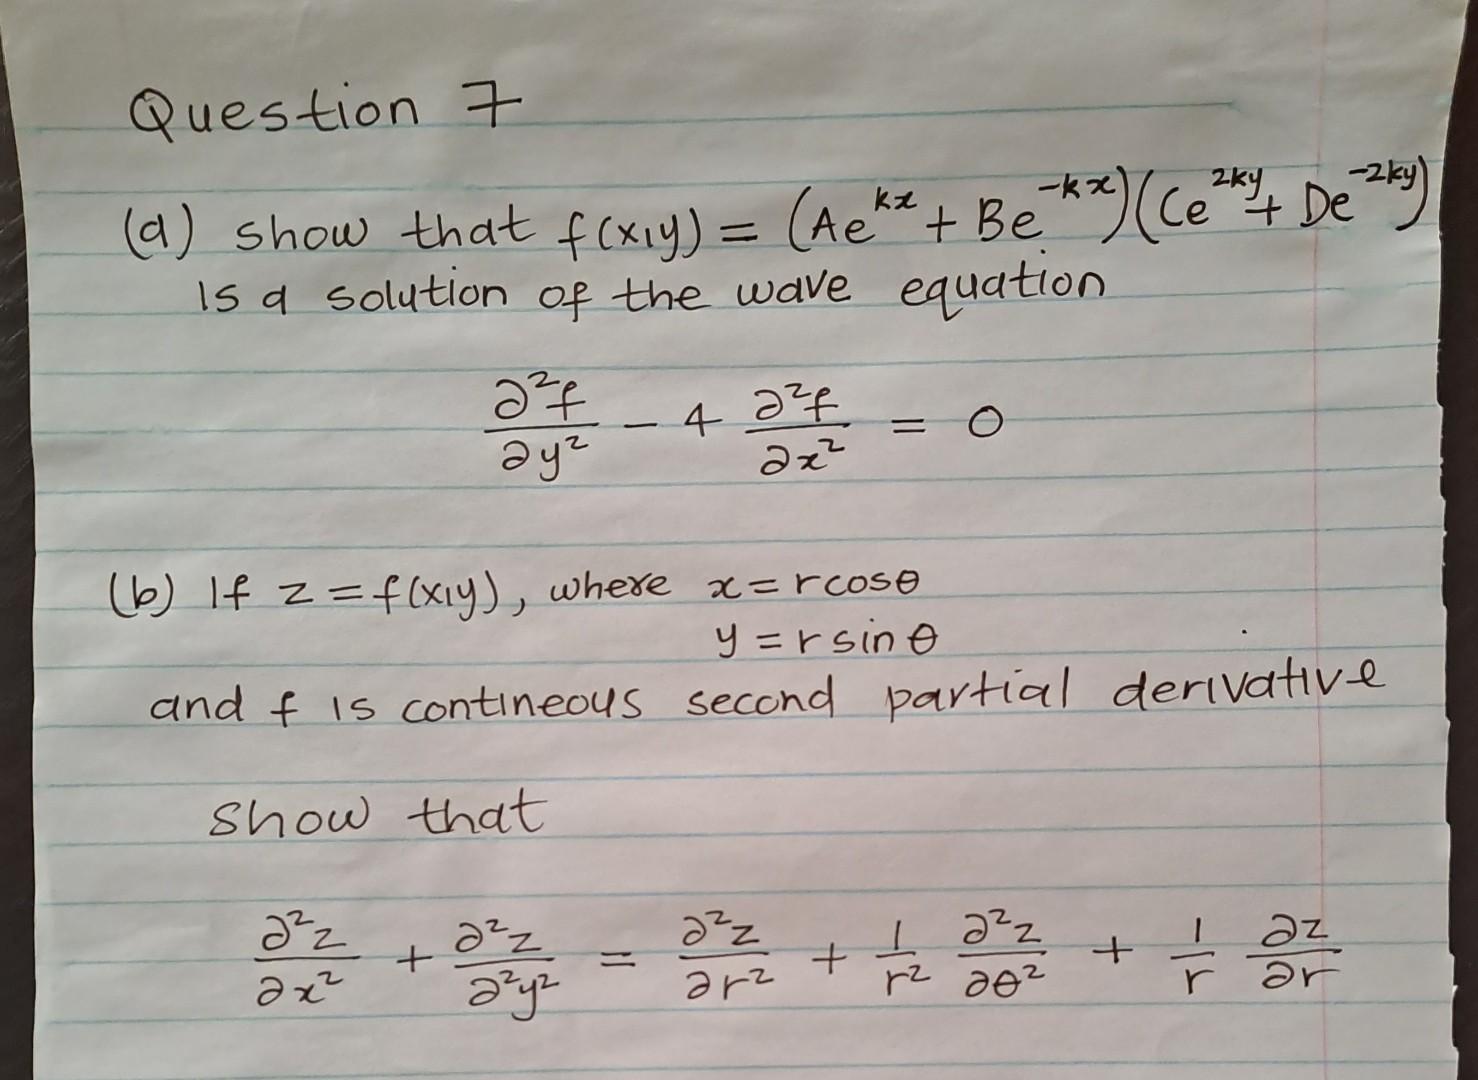 Question 7
(a) show that f(x,y) = (Ae^{kx} + Be^{-kx})(Ce^{2ky} + De^{-2ky})
is a solution of the wave equation
∂²f/∂y² - 4 ∂²f/∂x² = 0
(b) If z = f(x,y), where x = rcosθ
y = r sin θ
and f is contineous second partial derivative
show that
∂²z/∂x² + ∂²z/∂²y² = ∂²z/∂r² + 1/r² ∂²z/∂θ² + 1/r ∂z/∂r